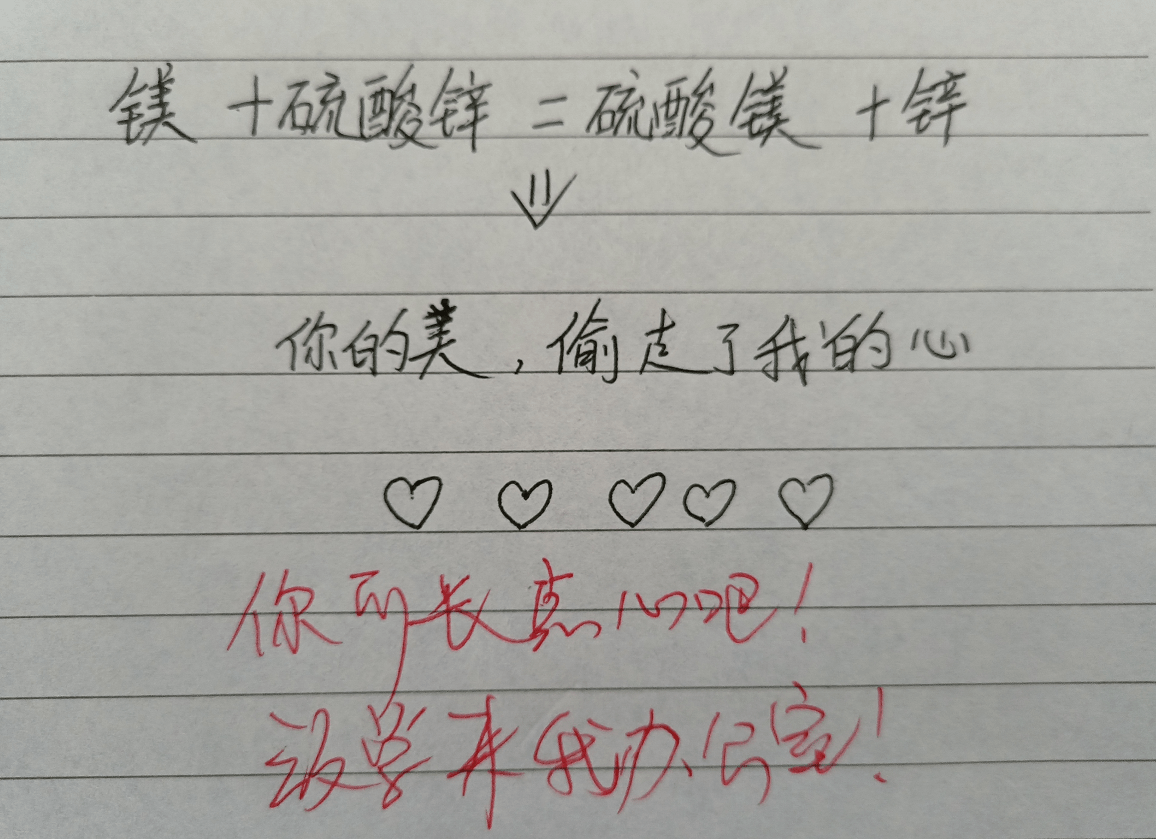 镁+硫酸锌=硫酸镁+锌
⇓
你的美,偷走了我的心
♡ ♡ ♡ ♡ ♡
你可长点心吧!
放学来我办公室!